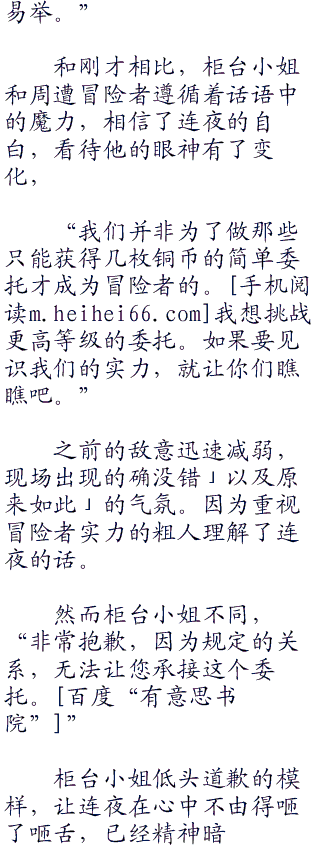 易举。”
和刚才相比，柜台小姐
和周遭冒险者遵循着话语中
的魔力，相信了连夜的自
白，看待他的眼神有了变
化，
“我们并非为了做那些
只能获得几枚铜币的简单委
托才成为冒险者的。[手机阅
读m.heihei66.com]我想挑战
更高等级的委托。如果要见
识我们的实力，就让你们瞧
瞧吧。”
之前的敌意迅速减弱，
现场出现的确没错」以及原
来如此」的气氛。因为重视
冒险者实力的粗人理解了连
夜的话。
然而柜台小姐不同，
“非常抱歉，因为规定的关
系，无法让您承接这个委
托。[百度“有意思书
院”]”
柜台小姐低头道歉的模
样，让连夜在心中不由得咂
了咂舌，已经精神暗